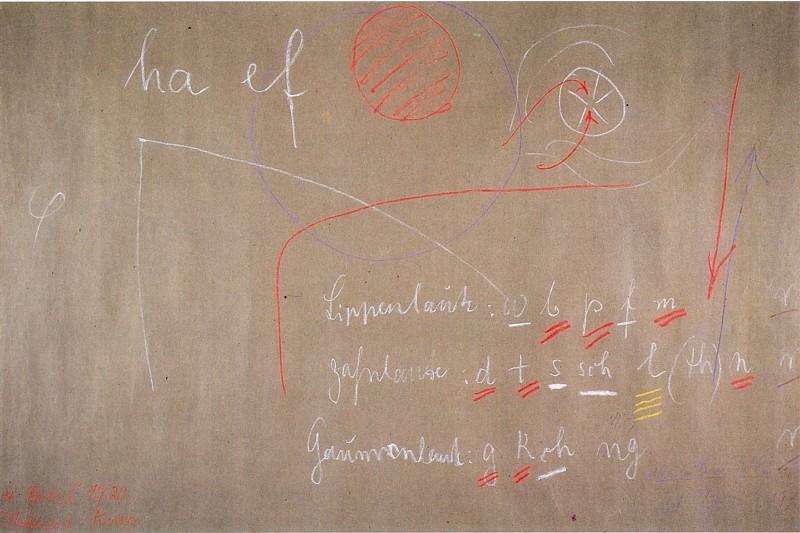 ha ef
φ
Lippenlaute: w b p f m r
Zahnlaute: d t s sch l (th) n r
Gaumenlaut: g k ch ng r
1921